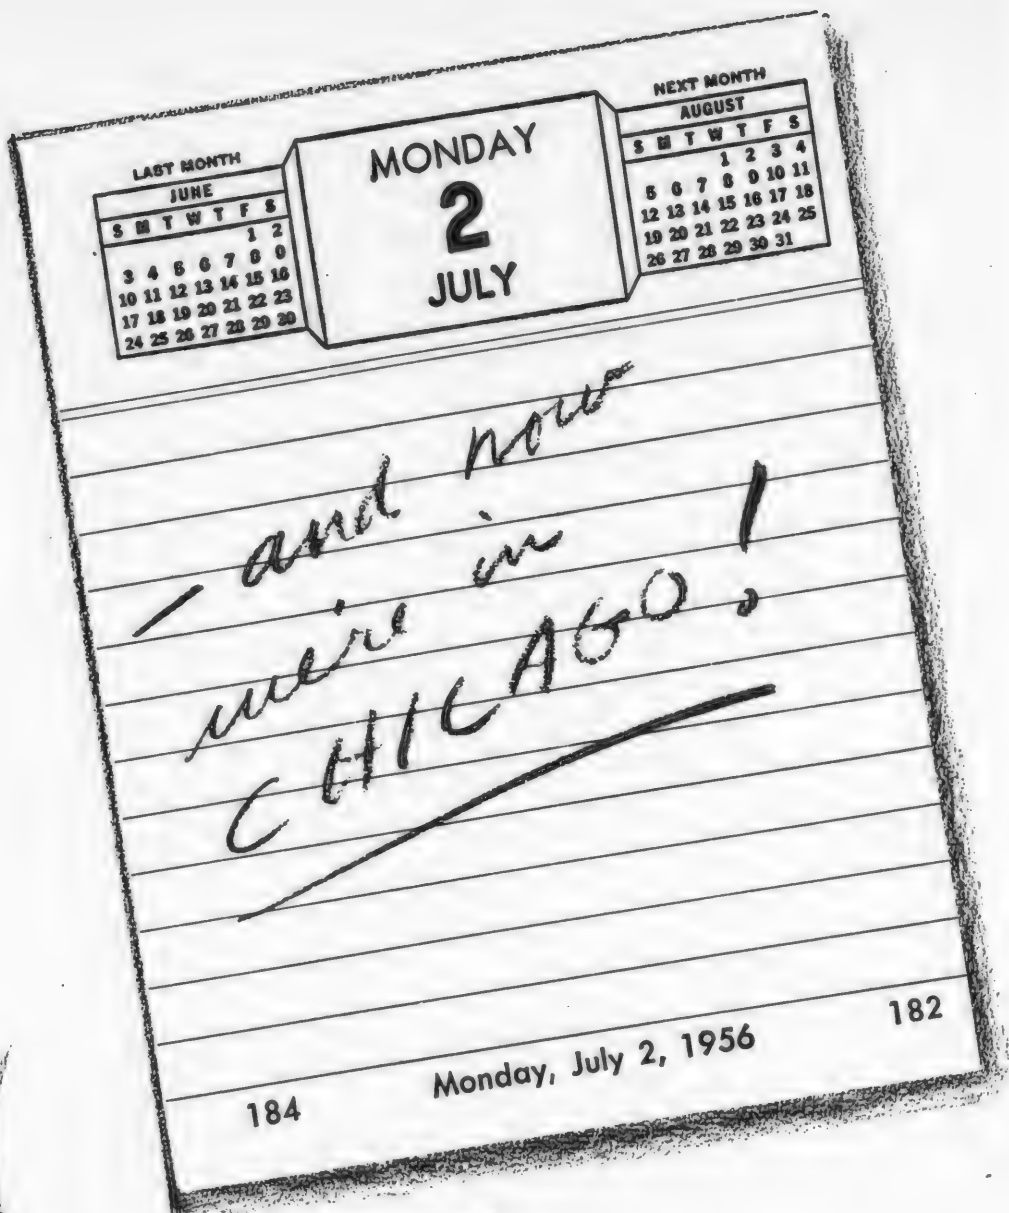 LAST MONTH
JUNE
S M T W T F S
1 2
3 4 5 6 7 8 9
10 11 12 13 14 15 16
17 18 19 20 21 22 23
24 25 26 27 28 29 30
MONDAY
2
JULY
NEXT MONTH
AUGUST
S M T W T F S
1 2 3 4
5 6 7 8 9 10 11
12 13 14 15 16 17 18
19 20 21 22 23 24 25
26 27 28 29 30 31
— and now
we're in
CHICAGO!
184 Monday, July 2, 1956 182